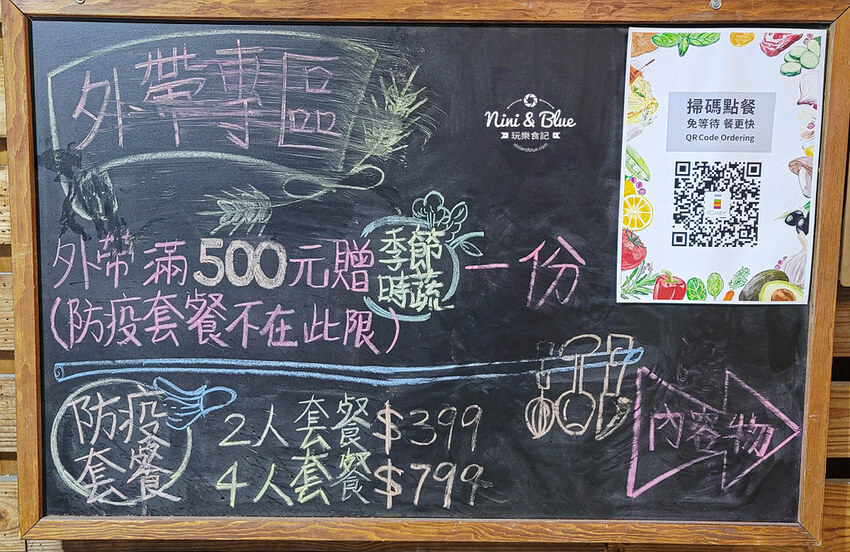 外帶專區
Nini & Blue
玩樂食記
niniandblue.com
掃碼點餐
免等待 餐更快
QR Code Ordering
外帶滿500元贈季節時蔬一份
(防疫套餐不在此限)
防疫套餐
2人套餐$399
4人套餐$799
內容物